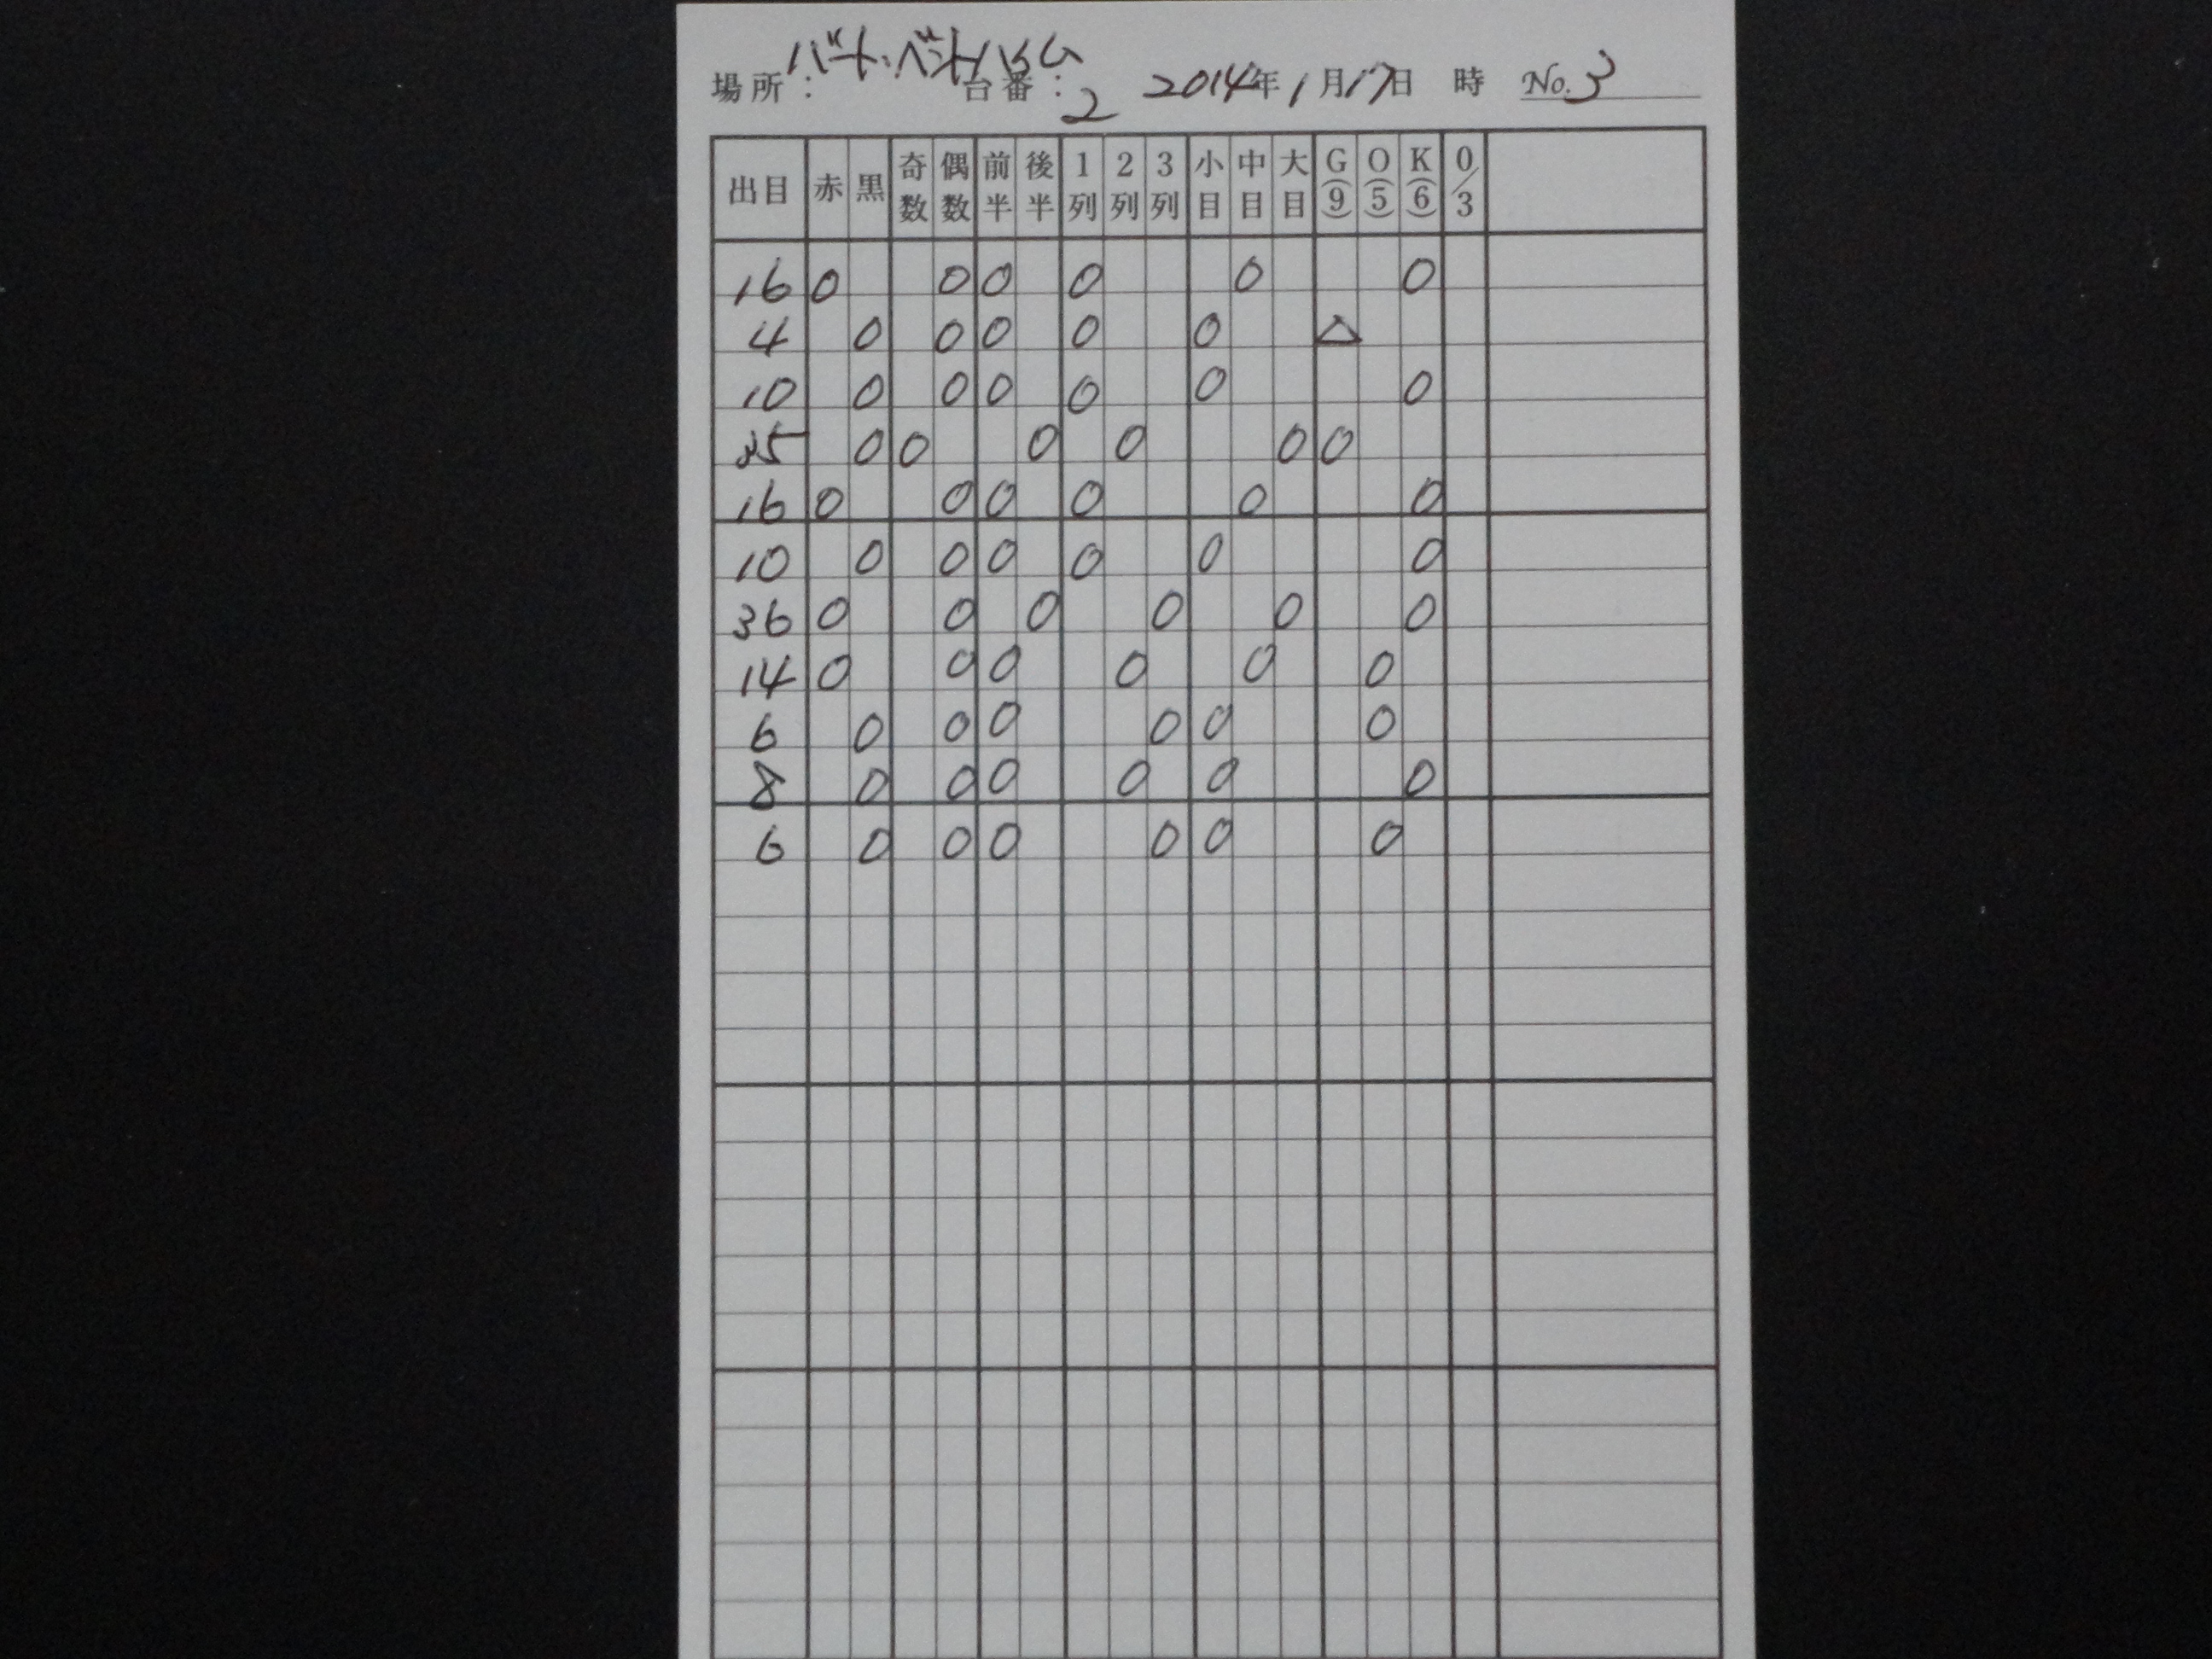 場所：バート・ベントハイム 台番：2 2014年1月17日 時 No.3
出目 赤 黒 奇数 偶数 前半 後半 1列 2列 3列 小目 中目 大目 G(9) O(5) K(6) 0/3
16 0 0 0 0 0 0
4 0 0 0 0 0 △
10 0 0 0 0 0 0
35 0 0 0 0 0 0
16 0 0 0 0 0 0
10 0 0 0 0 0 0
36 0 0 0 0 0 0
14 0 0 0 0 0 0
6 0 0 0 0 0 0
8 0 0 0 0 0 0
6 0 0 0 0 0 0